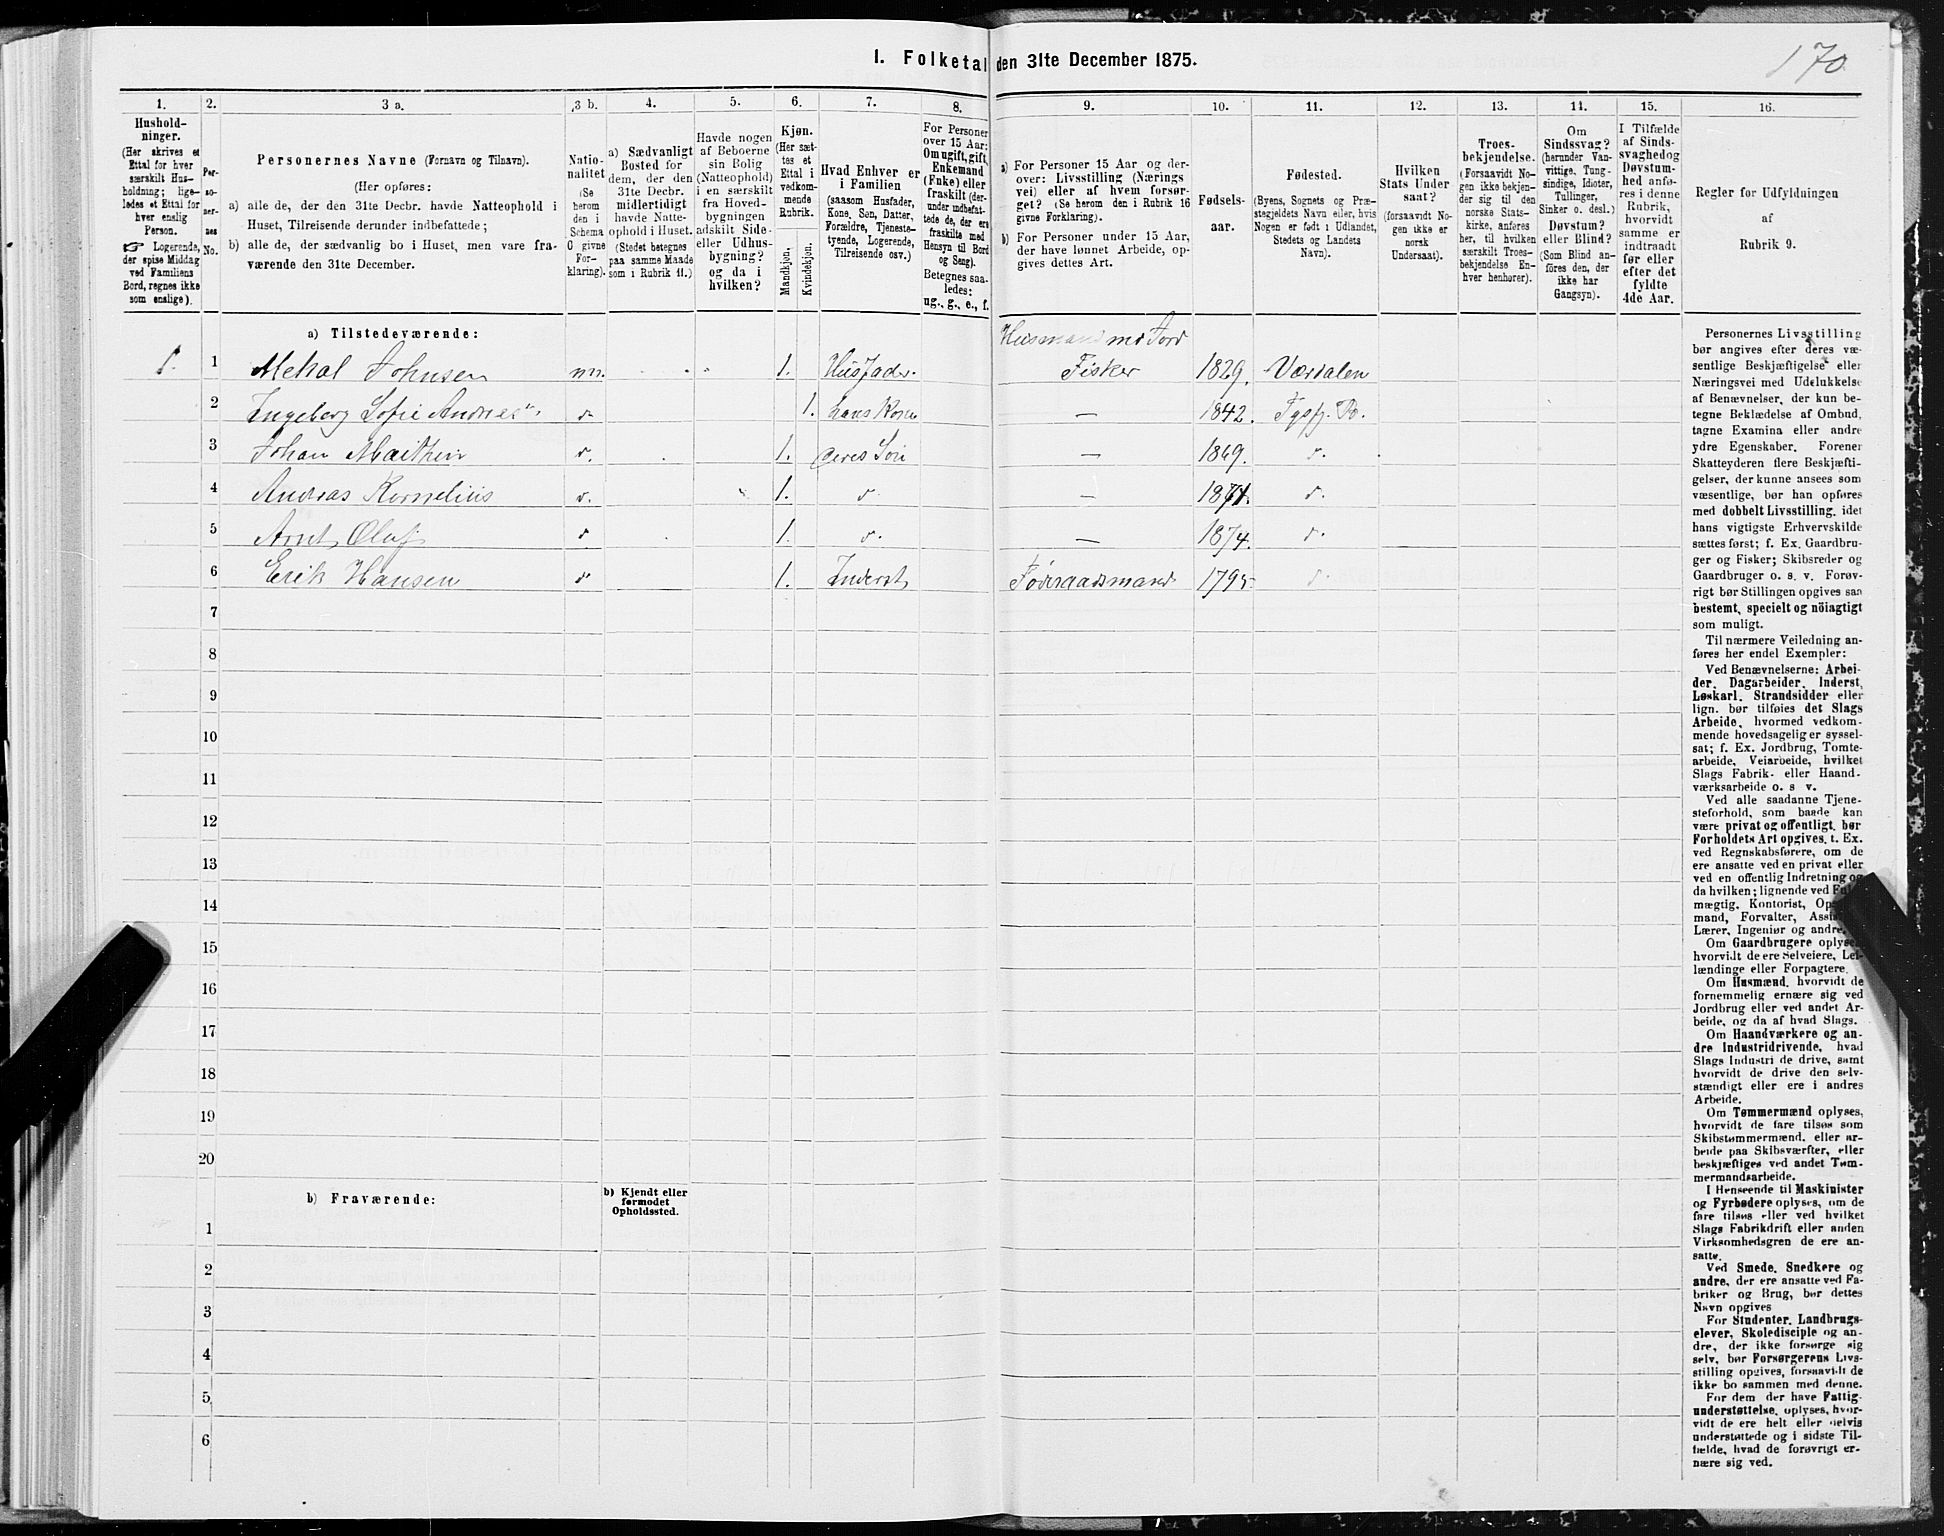 I. Folketal den 31te December 1875.
170
1. 2. 3 a. 3 b. 4. 5. 6. 7. 8. 9. 10. 11. 12. 13. 14. 15. 16.
Hushold-
ninger.
(Her skrives et
Ettal for hver
særskilt Hus-
holdning; lige-
ledes et Ettal for
hver enslig
Person.
☞ Logerende,
der spise Middag
ved Familiens
Bord, regnes ikke
som enslige).
Per-
so-
ner-
nes
No.
Personernes Navne (Fornavn og Tilnavn).
(Her opføres:
a) alle de, der den 31te Decbr. havde Natteophold i
Huset, Tilreisende derunder indbefattede;
b) alle de, der sædvanlig bo i Huset, men vare fra-
værende den 31te December.
Natio-
nalitet
(Se
herom
den i
Schema
O givne
For-
klaring).
a) Sædvanligt
Bosted for
dem, der den
31te Decbr.
midlertidigt
havde Natte-
ophold i Huset.
(Stedet betegnes
paa samme Maade
som i Rubrik 11.)
Havde nogen
af Beboerne
sin Bolig
(Natteophold)
i en særskilt
fra Hoved-
bygningen
adskilt Side-
eller Udhus-
bygning?
og da i
hvilken?
Kjøn.
(Her sæt-
tes et
Ettal i
vedkom-
mende
Rubrik.
Mandkjøn.
Kvindekjøn.
Hvad Enhver er
i Familien
(saasom Husfader,
Kone, Søn, Datter,
Forældre, Tjeneste-
tyende, Logerende,
Tilreisende osv.)
For Personer
over 15 Aar:
Om ugift, gift,
Enkemand
(Enke) eller
fraskilt (der-
under indbefat-
tede de, der ere
fraskilte med
Hensyn til Bord
og Seng).
Betegnes saa-
ledes:
ug., g., e., f.
a) For Personer 15 Aar og der-
over: Livsstilling (Nærings
vei) eller af hvem forsør-
get? (Se herom den i Rubrik 16
givne Forklaring).
b) For Personer under 15 Aar,
der have lønnet Arbeide, op-
gives dettes Art.
Fødsels-
aar.
Fødested.
(Byens, Sognets og Præ-
stegjeldets Navn eller, hvis
Nogen er født i Udlandet,
Stedets og Landets
Navn).
Hvilken
Stats Under
saat?
(forsaavidt No-
gen ikke er
norsk
Undersaat).
Troes-
bekjendelse.
(Forsaavidt No-
gen ikke bekjen-
der sig til den
norske Stats-
kirke, anføres
her, til hvilken
særskilt Troes-
bekjendelse En-
hver henhører).
Om
Sindssvag?
(herunder Van-
vittige, Tung-
sindige, Idioter,
Tullinger,
Sinker o. desl.)
Døvstum?
eller Blind?
(Som Blind an-
føres den, der
ikke har
Gangsyn).
I Tilfælde
af Sinds-
svaghed og
Døvstum-
hed anfø-
res i denne
Rubrik,
hvorvidt
samme er
indtraadt
før eller
efter det
fyldte
4de Aar.
Regler for Udfyldningen
af
Rubrik 9.
a) Tilstedeværende:
Husmand md Jord
1. 1 Mekal Johnsen nn. 1. Husfader. Fisker 1829. Værdalen
2 Ingeborg Sofie Andreasd. d 1. hans Kone — 1842. Tysfj. P.
3 Johan Maithin d. 1. deres Søn — 1869. d.
4 Andreas Kornelius d. 1. d — 1871. d.
5 Arnt Oluf d 1. d. — 1874. d.
6 Erik Hansen d 1. Inderst Føderaadsmand 1795 d
7
8
9
10
11
12
13
14
15
16
17
18
19
20
b) Fraværende:
b) Kjendt eller
formodet
Opholdssted.
1
2
3
4
5
6
Personernes Livsstilling
bør angives efter deres væ-
sentlige Beskjæftigelse eller
Næringsvei med Udelukkelse
af Benævnelser, der kun be-
tegne Beklædelse af Ombud,
tagne Examina eller andre
ydre Egenskaber. Forener
Skatteyderen flere Beskjæfti-
gelser, der kunne ansees som
væsentlige, bør han opføres
med dobbelt Livsstilling, idet
hans vigtigste Erhvervskilde
sættes først; f. Ex. Gaardbru-
ger og Fisker; Skibsreder og
Gaardbruger o. s. v. Forøv-
rigt bør Stillingen opgives saa
bestemt, specielt og nöiagtigt
som muligt.
Til nærmere Veiledning an-
føres her endel Exempler:
Ved Benævnelserne: Arbei-
der, Dagarbeider, Inderst,
Løskarl, Strandsidder eller
lign. bør tilføies det Slags
Arbeide, hvormed vedkom-
mende hovedsagelig er syssel-
sat; f. Ex. Jordbrug, Tomte-
arbeide, Veiarbeide, hvilket
Slags Fabrik- eller Haand-
værksarbeide o. s v.
Ved alle saadanne Tjene-
steforhold, som baade kan
være privat og offentligt, bør
Forholdets Art opgives, t. Ex.
ved Regnskabsførere, om de
ere ansatte ved en privat eller
ved en offentlig Indretning og
da hvilken; lignende ved Ful
mægtig, Kontorist, Op
mand, Forvalter, Assi
Lærer, Ingeniør og andre.
Om Gaardbrugere oplyse
hvorvidt de ere Selveiere, Lei-
lændinge eller Forpagtere.
Om Husmænd, hvorvidt de
fornemmelig ernære sig ved
Jordbrug eller ved andet Ar-
beide, og da af hvad Slags.
Om Haandværkere og an-
dre Industridrivende, hvad
Slags Industri de drive, samt
hvorvidt de drive den selv-
stændigt eller ere i andres
Arbeide.
Om Tømmermænd oplyses,
hvorvidt de fare tilsøs som
Skibstømmermænd, eller ar-
beide paa Skibsværfter, eller
beskjæftiges ved andet Tøm-
mermandsarbeide.
I Henseende til Maskinister
og Fyrbødere oplyses, om de
fare tilsøs eller ved hvilket
Slags Fabrikdrift eller anden
Virksomhedsgren de ere an-
satte.
Ved Smede, Snedkere og
andre, der ere ansatte ved Fa-
briker og Brug, bør dettes
Navn opgives
For Studenter, Landbrugs-
elever, Skoledisciple og an-
dre, der ikke forsørge sig
selv, bør Forsørgerens Livs-
stilling opgives, forsaavidt de
ikke bo sammen med denne.
For dem der have Fattig-
understøttelse, oplyses, hvor-
vidt de ere helt eller delvis
understøttede og i sidste Til-
fælde, hvad de forøvrigt er-
nære sig ved.